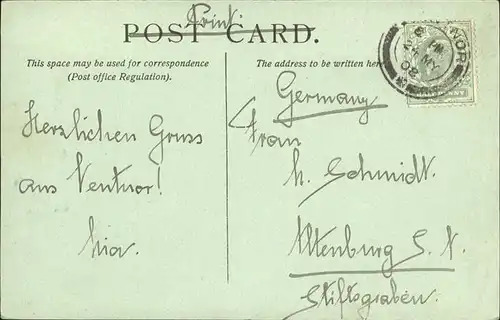 Print.
POST CARD.
This space may be used for correspondence
(Post office Regulation).
The address to be written here
Germany
Herzlichen Gruss
aus Ventnor!
Frau
h. Schmidt.
Altenburg S. A.
Stiftsgraben.